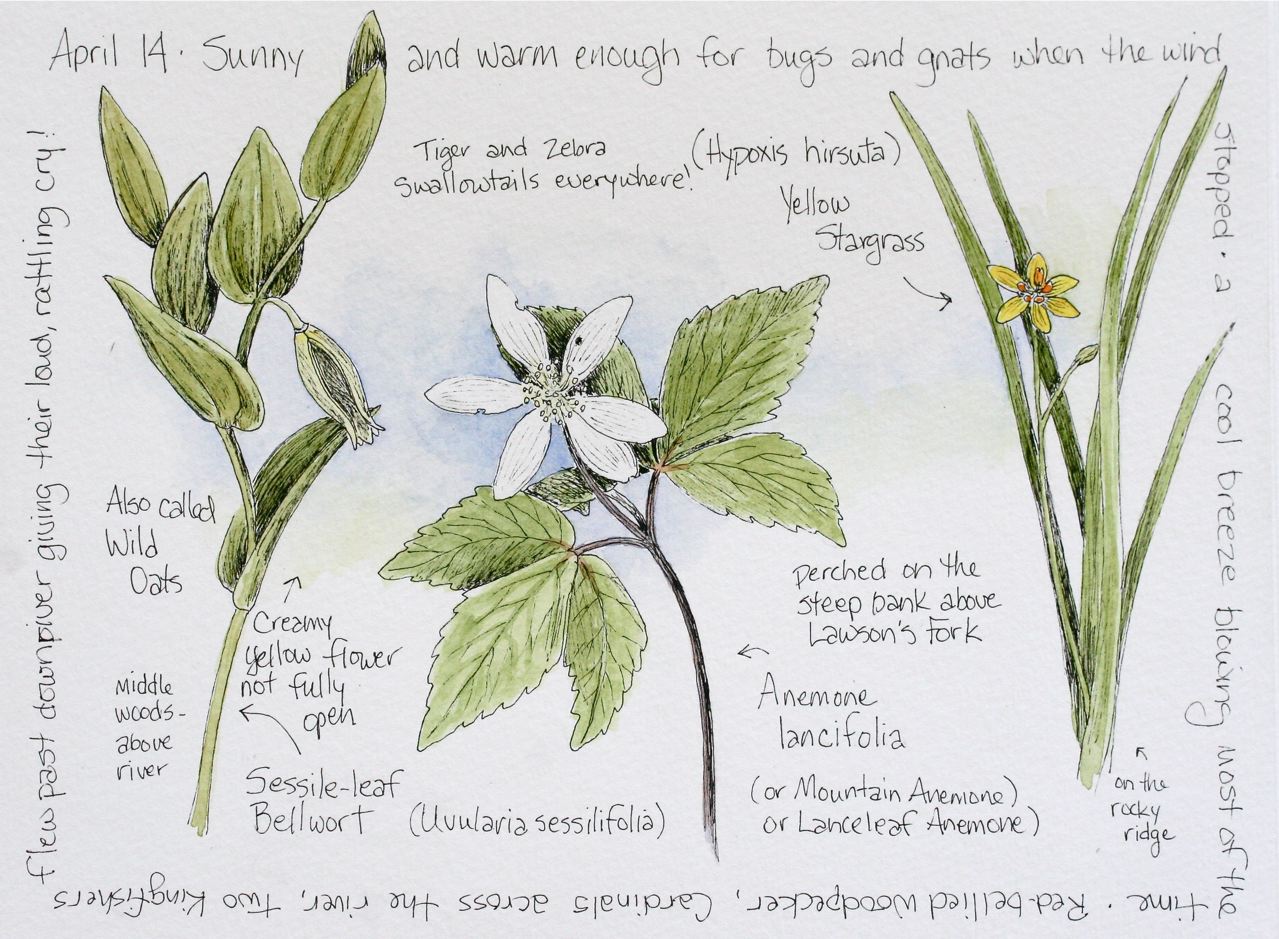 April 14 · Sunny and warm enough for bugs and gnats when the wind
stopped · a cool breeze blowing most of the
time · Red-bellied woodpecker, Cardinals across the river, two Kingfishers
flew past downriver giving their loud, rattling cry!
Tiger and Zebra
Swallowtails everywhere!
(Hypoxis hirsuta)
Yellow
Stargrass
Also called
Wild
Oats
Creamy
yellow flower
not fully
open
middle
woods-
above
river
Sessile-leaf
Bellwort (Uvularia sessilifolia)
perched on the
steep bank above
Lawson's Fork
Anemone
lancifolia
(or Mountain Anemone)
or Lanceleaf Anemone)
on the
rocky
ridge